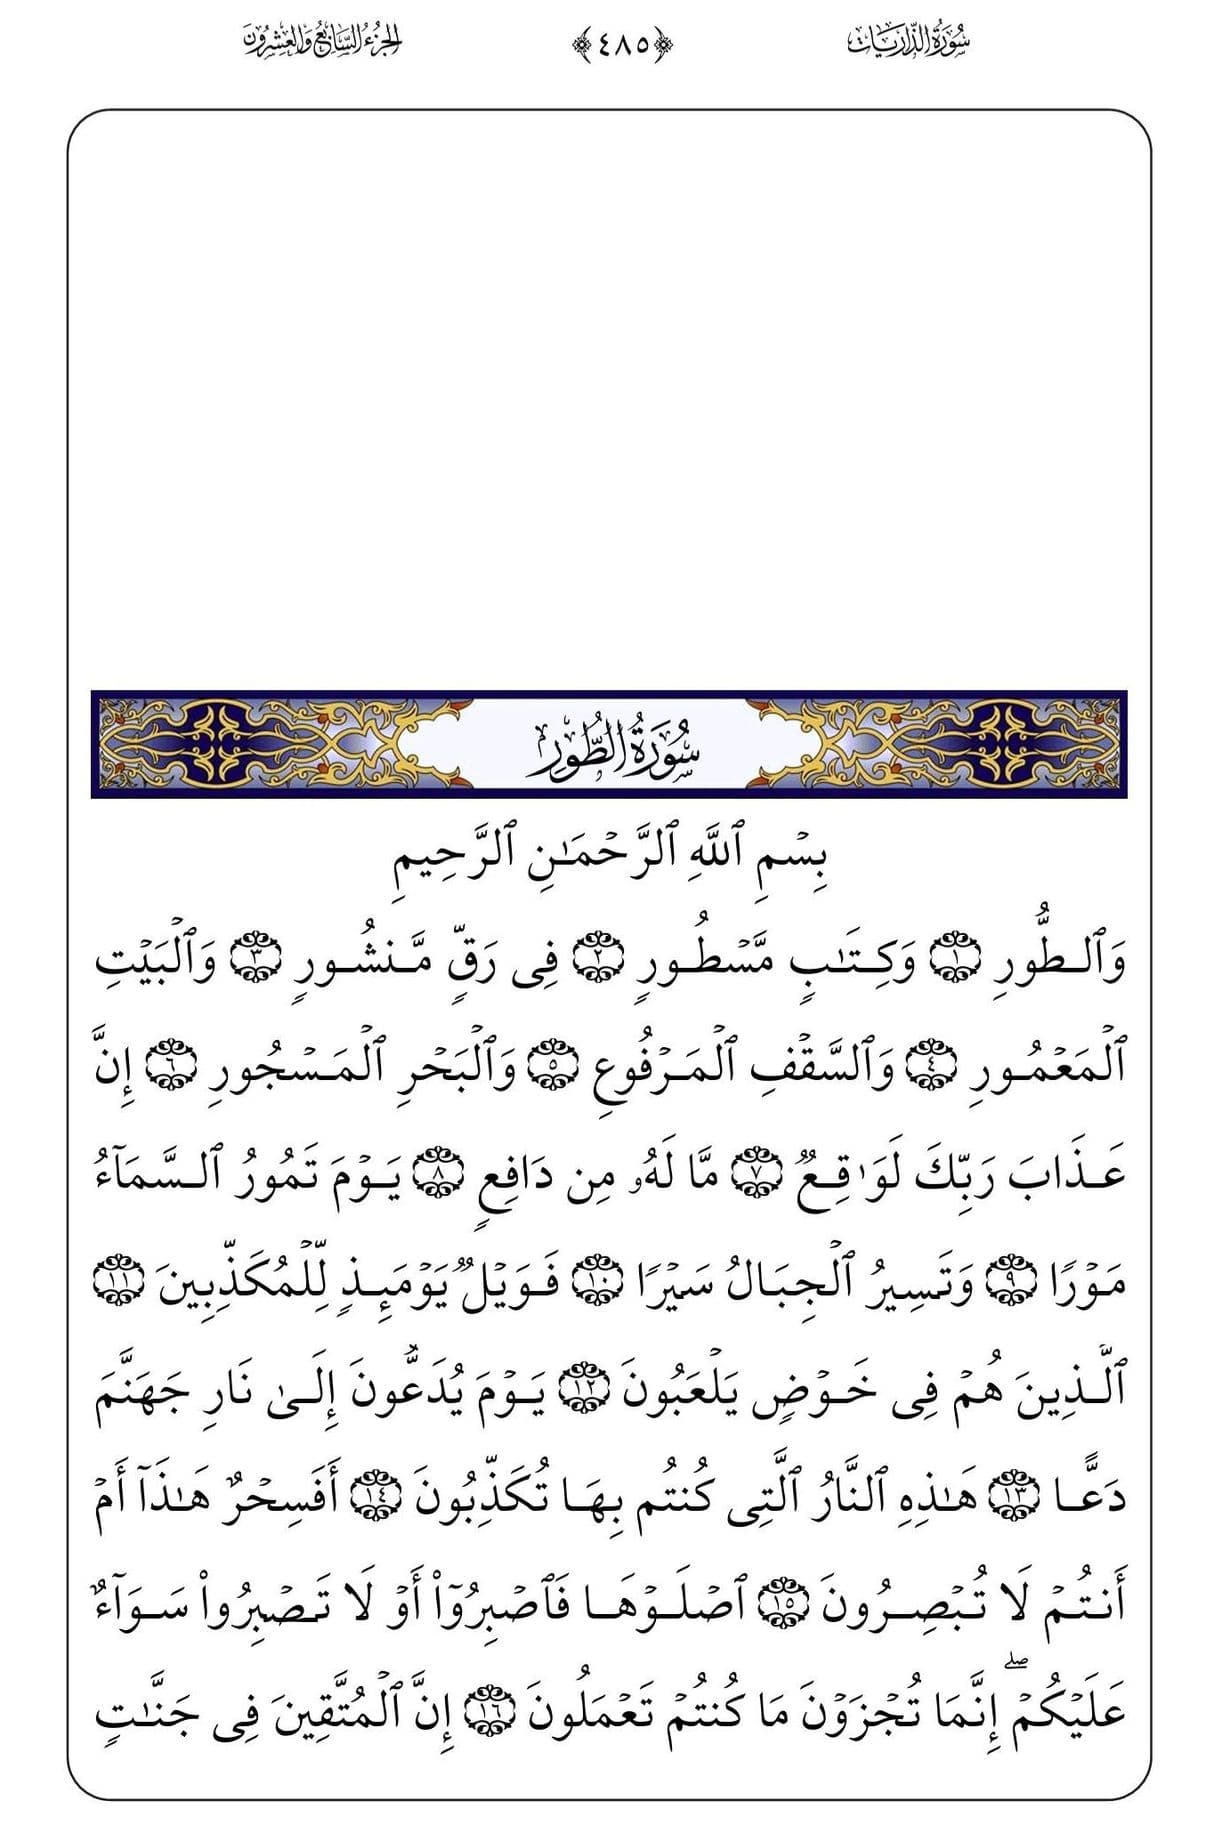 سُورَةُ الذَّارِيَات ﴿٤٨٥﴾ الجُزْءُ السَّابِعُ وَالعِشْرُونَ
سُورَةُ الطُّورِ
بِسۡمِ ٱللَّهِ ٱلرَّحۡمَـٰنِ ٱلرَّحِيمِ
وَٱلطُّورِ ١ وَكِتَـٰبٍ مَّسۡطُورٍ ٢ فِى رَقٍّ مَّنشُورٍ ٣ وَٱلۡبَيۡتِ
ٱلۡمَعۡمُورِ ٤ وَٱلسَّقۡفِ ٱلۡمَرۡفُوعِ ٥ وَٱلۡبَحۡرِ ٱلۡمَسۡجُورِ ٦ إِنَّ
عَذَابَ رَبِّكَ لَوَٰقِعٌ ٧ مَّا لَهُۥ مِن دَافِعٍ ٨ يَوۡمَ تَمُورُ ٱلسَّمَآءُ
مَوۡرًا ٩ وَتَسِيرُ ٱلۡجِبَالُ سَيۡرًا ١٠ فَوَيۡلٌ يَوۡمَئِذٍ لِّلۡمُكَذِّبِينَ ١١
ٱلَّذِينَ هُمۡ فِى خَوۡضٍ يَلۡعَبُونَ ١٢ يَوۡمَ يُدَعُّونَ إِلَىٰ نَارِ جَهَنَّمَ
دَعًّا ١٣ هَـٰذِهِ ٱلنَّارُ ٱلَّتِى كُنتُم بِهَا تُكَذِّبُونَ ١٤ أَفَسِحۡرٌ هَـٰذَآ أَمۡ
أَنتُمۡ لَا تُبۡصِرُونَ ١٥ ٱصۡلَوۡهَا فَٱصۡبِرُوٓا۟ أَوۡ لَا تَصۡبِرُوا۟ سَوَآءٌ
عَلَيۡكُمۡۖ إِنَّمَا تُجۡزَوۡنَ مَا كُنتُمۡ تَعۡمَلُونَ ١٦ إِنَّ ٱلۡمُتَّقِينَ فِى جَنَّـٰتٍ